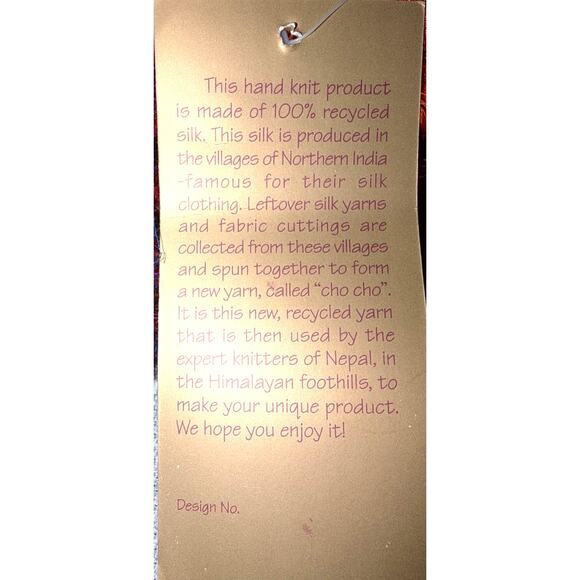 This hand knit product
is made of 100% recycled
silk. This silk is produced in
the villages of Northern India
-famous for their silk
clothing. Leftover silk yarns
and fabric cuttings are
collected from these villages
and spun together to form
a new yarn, called “cho cho”.
It is this new, recycled yarn
that is then used by the
expert knitters of Nepal, in
the Himalayan foothills, to
make your unique product.
We hope you enjoy it!
Design No.